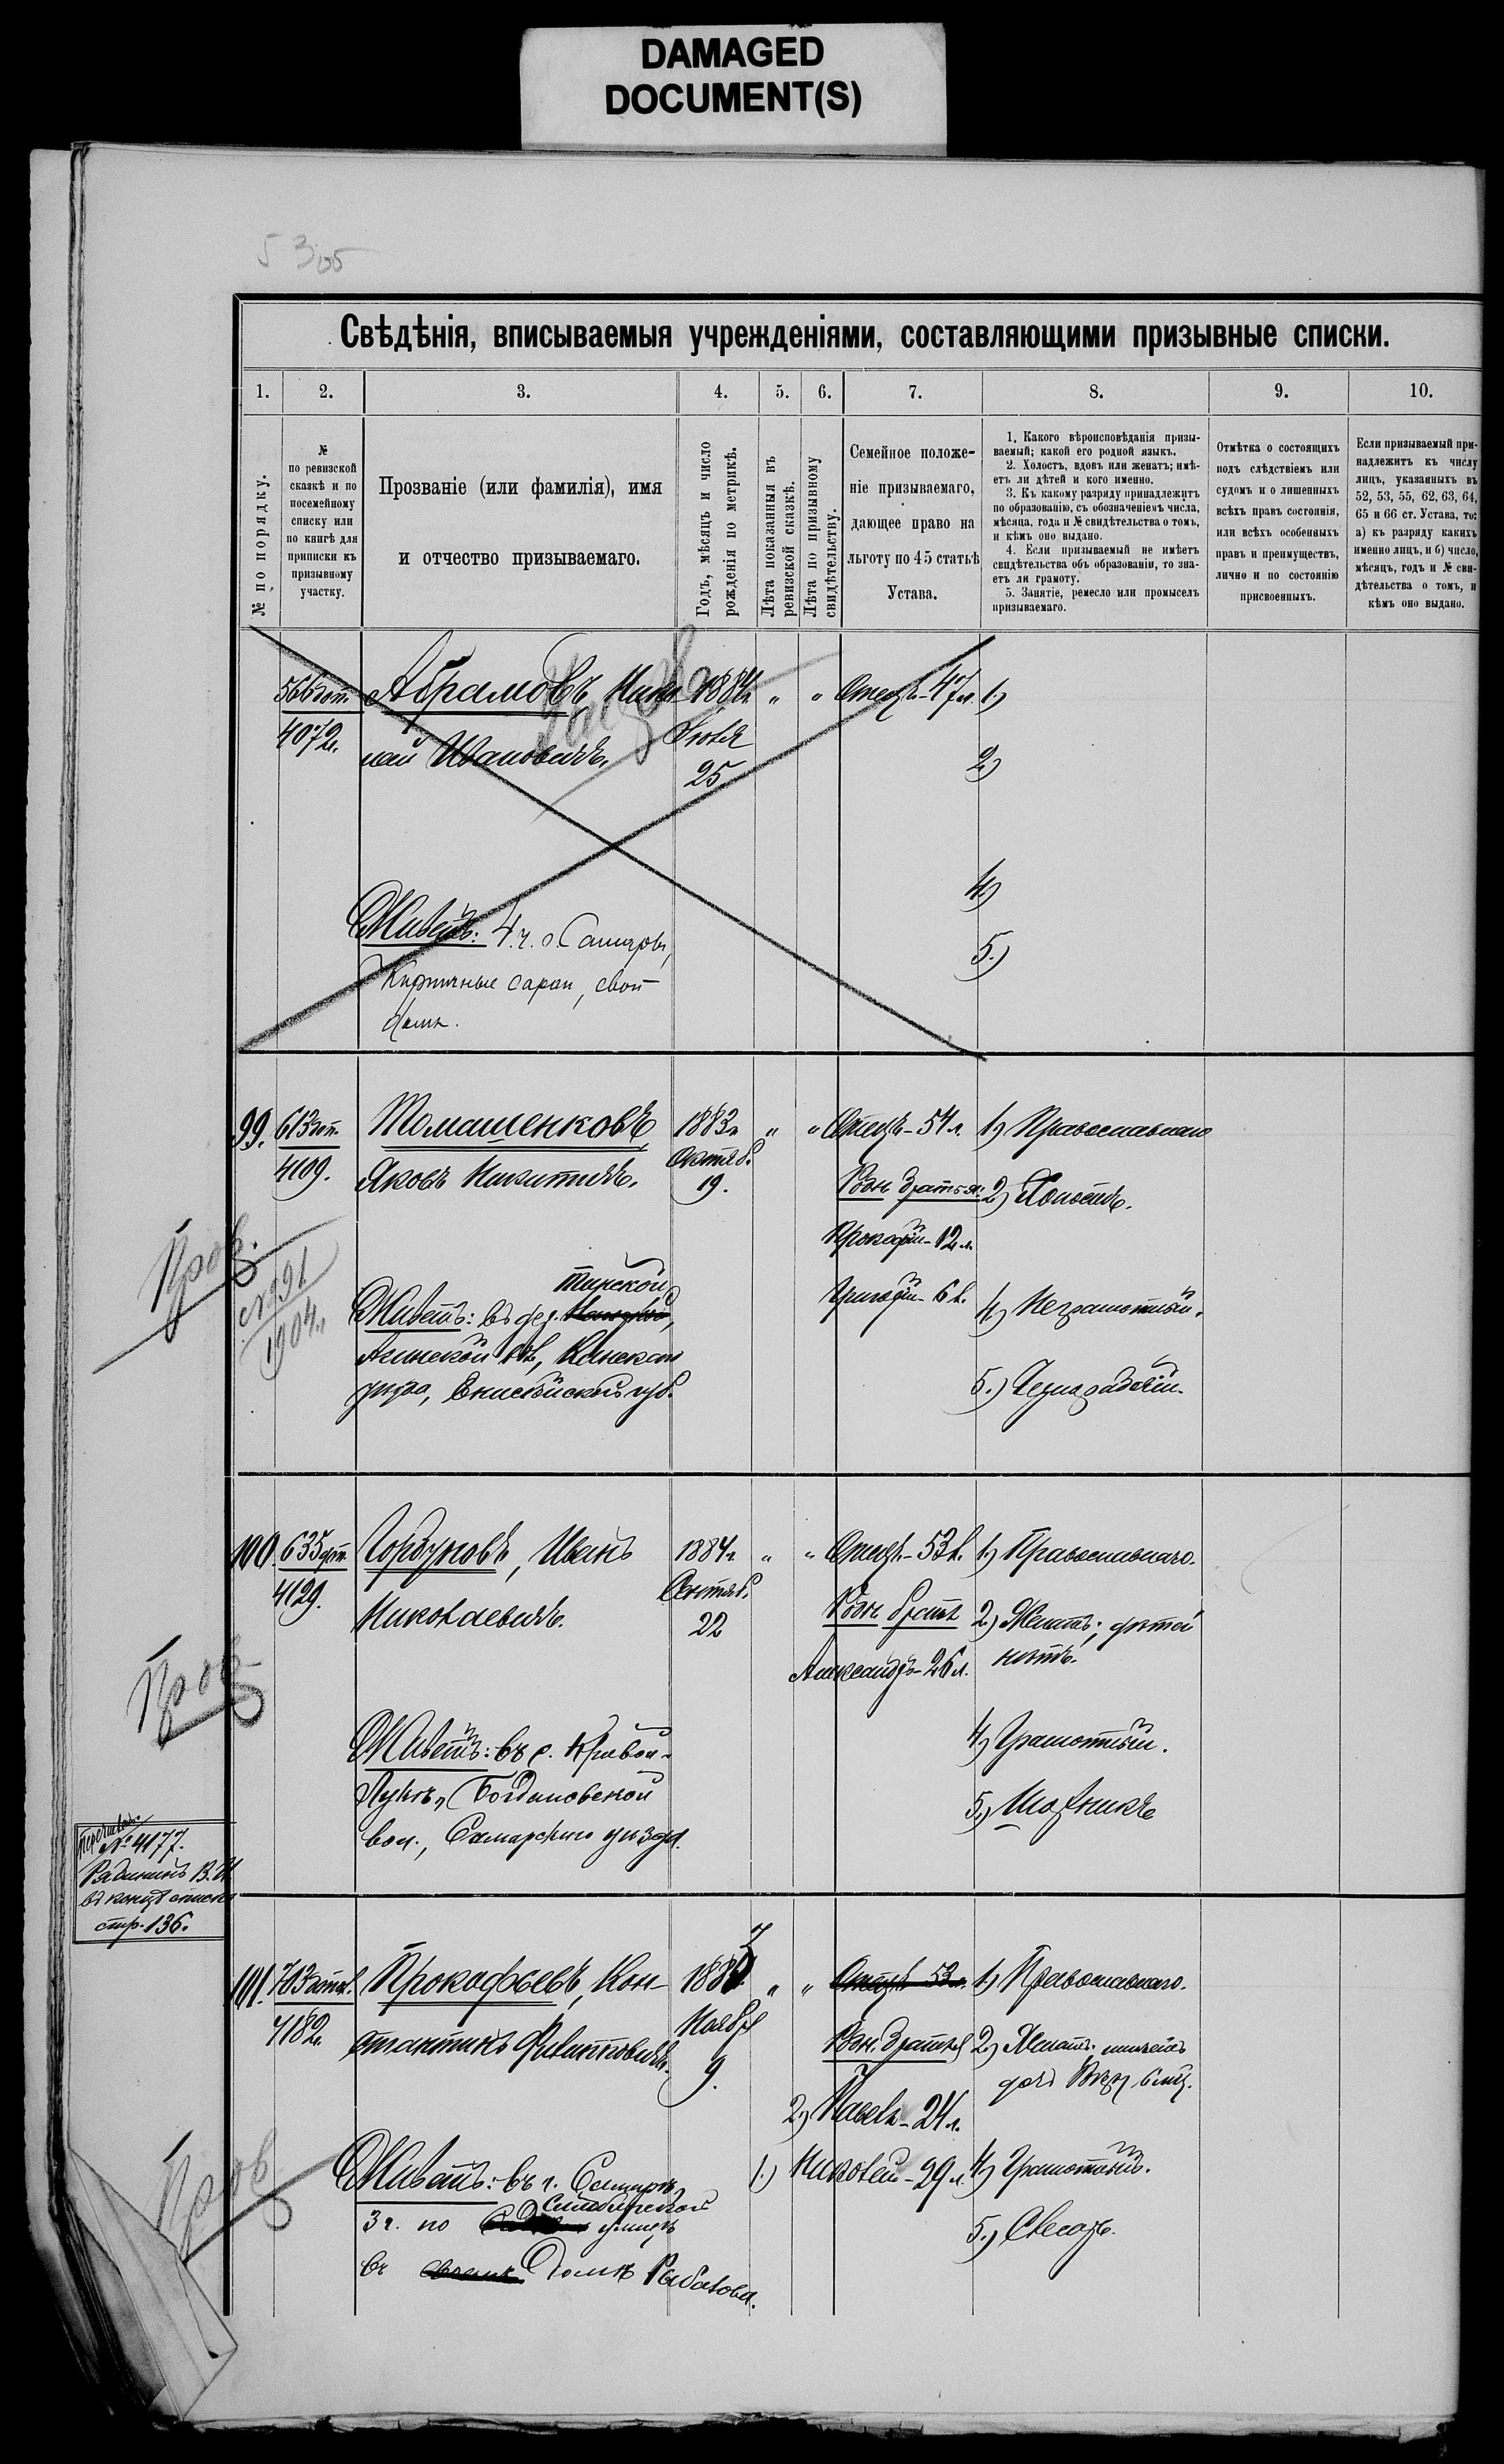 DAMAGED
DOCUMENT(S)
5305
Свѣдѣнія, вписываемыя учрежденіями, составляющими призывные списки.
1. 2. 3. 4. 5. 6. 7. 8. 9. 10.
№ по порядку.
№
по ревизской
сказкѣ и по
посемейному
списку или
по книгѣ для
приписки къ
призывному
участку.
Прозваніе (или фамилія), имя
и отчество призываемаго.
Годъ, мѣсяцъ и число
рожденія по метрикѣ.
Лѣта показанныя въ
ревизской сказкѣ.
Лѣта по призывному
свидѣтельству.
Семейное положе-
ніе призываемаго,
дающее право на
льготу по 45 статьѣ
Устава.
1. Какого вѣроисповѣданія призы-
ваемый; какой его родной языкъ.
2. Холостъ, вдовъ или женатъ; имѣ-
етъ ли дѣтей и кого именно.
3. Къ какому разряду принадлежитъ
по образованію, съ обозначеніемъ числа,
мѣсяца, года и № свидѣтельства о томъ,
и кѣмъ оно выдано.
4. Если призываемый не имѣетъ
свидѣтельства объ образованіи, то зна-
етъ ли грамоту.
5. Занятіе, ремесло или промыселъ
призываемаго.
Отмѣтка о состоящихъ
подъ слѣдствіемъ или
судомъ и о лишенныхъ
всѣхъ правъ состоянія,
или всѣхъ особенныхъ
правъ и преимуществъ,
лично и по состоянію
присвоенныхъ.
Если призываемый при-
надлежитъ къ числу
лицъ, указанныхъ въ
52, 53, 55, 62, 63, 64,
65 и 66 ст. Устава, то:
а) къ разряду какихъ
именно лицъ, и б) число,
мѣсяцъ, годъ и № сви-
дѣтельства о томъ, и
кѣмъ оно выдано.
566 4072. Абрамовъ, Нико- 1884г. " " Отецъ-47л. 1)
лай Ивановичъ. Іюля 25 2)
4)
Живетъ: 4 ч. г. Самары,
Кирпичные сараи, свой
домъ.
5.)
99. 613 4109. Томашенковъ, 1883г. " " Отецъ-54л. 1) Православнаго
Яковъ Никитичъ. Октяб. 19. Родн. братья: 2) Холостъ.
Прокофій-12л.
Григорій-6л. 4) Неграмотный.
Пров.
№ 391
1904г.
Тирской
Живетъ: въ дер.
Агинской вол., Канскаго
уѣзда, Енисейской губ.
5.) Чернорабочій.
100. 635 4129. Горбуновъ, Иванъ 1884г. " " Отецъ-53л. 1) Православнаго.
Николаевичъ. Сентяб. 22 Родн. братъ 2) Женатъ; дѣтей
Александръ-26л. нѣтъ.
Пров.
Живетъ: въ с. Кривой-
Лукѣ, Богдановской
вол., Самарскаго уѣзда.
4) Грамотный.
5.) Сапожникъ
№ 4177.
Рябининъ В. И.
въ концѣ списка
стр. 136.
101. 703 4182. Прокофьевъ, Кон- 1883 " " Отецъ 53л. 1) Православнаго.
стантинъ Филипповичъ. Ноября 9. Родн. братья 2) Женатъ. имѣетъ
дочь Вѣру 6 мѣс.
2) Павелъ-24л.
1.) Николай-29л. 4) Грамотный.
Пров.
Живетъ: въ г. Самарѣ,
Симбирской
3 ч. по улицѣ
въ домѣ Рыбакова.
5.) Слесарь.